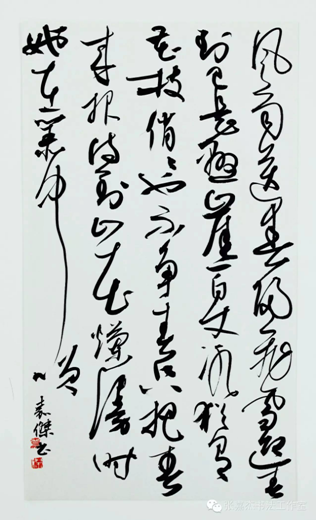 风雨送春归飞雪迎春
到已是悬崖百丈冰犹有
花枝俏〻也不争春只把春
来报待到山花烂漫时
她在丛中笑
嘉傑书